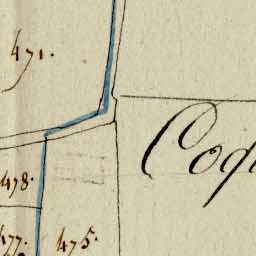 471.
Coq
478.
477.
475.